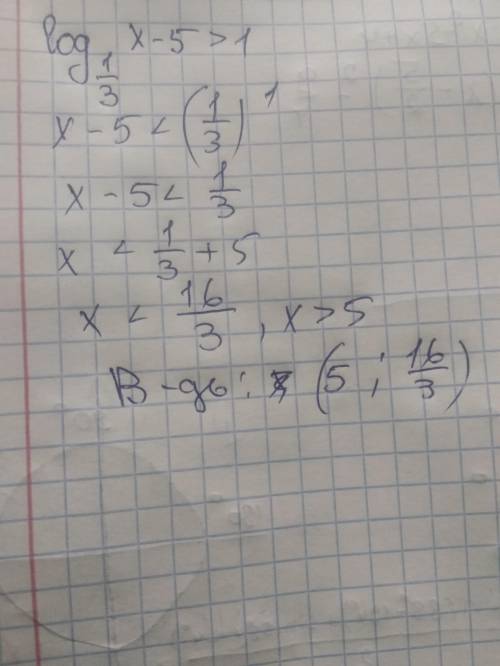 log_{1/3} x - 5 > 1
x - 5 < (1/3)^1
x - 5 < 1/3
x < 1/3 + 5
x < 16/3, x > 5
В-дь: (5; 16/3)